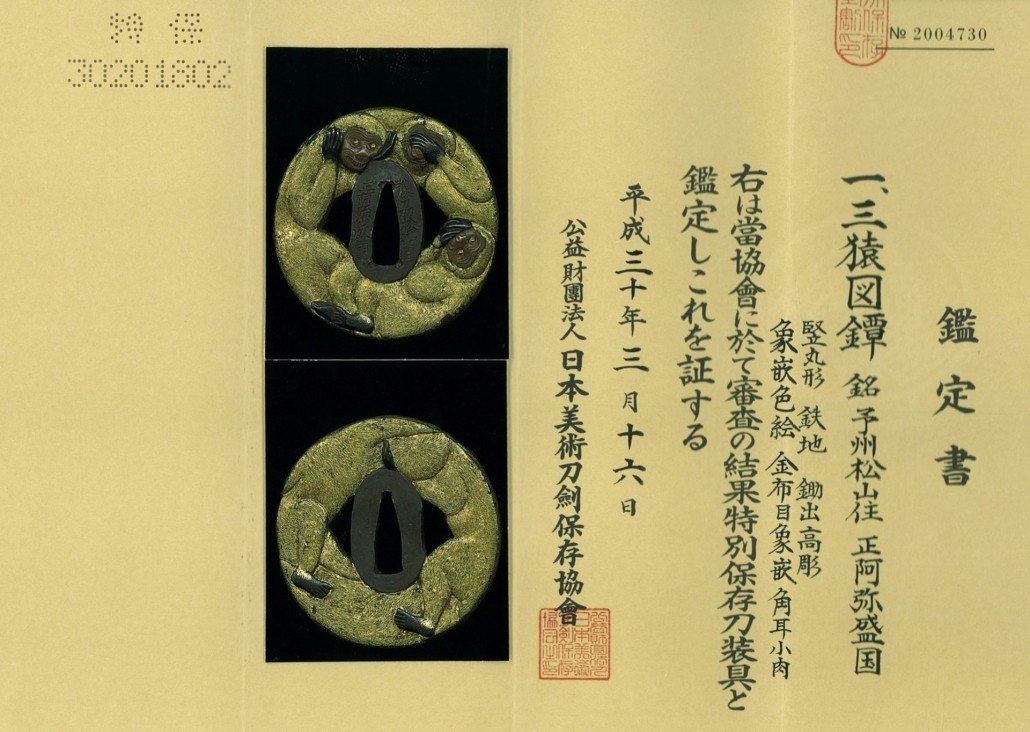 鑑定書
一、三猿図鐔 銘 予州松山住 正阿弥盛国
竪丸形 鉄地 鋤出高彫
象嵌色絵 金布目象嵌 角耳小肉
右は當協會に於て審査の結果特別保存刀装具と
鑑定しこれを証する
平成三十年三月十六日
公益財團法人 日本美術刀劍保存協會
№ 2004730
特保
30201802